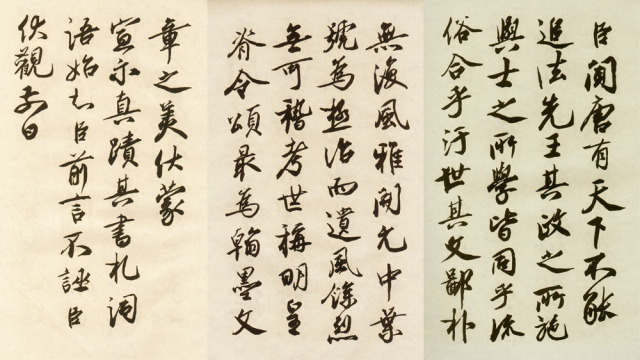 臣聞唐有天下不能
追法先王其政之所施
與士之所學皆同乎流
俗合乎汙世其文鄙朴
無復風雅開元中葉
號為極治而遺風餘烈
無可稽考世稱明皇
脊令頌最為翰墨文
章之美伏蒙
宣示真蹟其書札詞
語始知臣前言不誣臣
伏觀前日